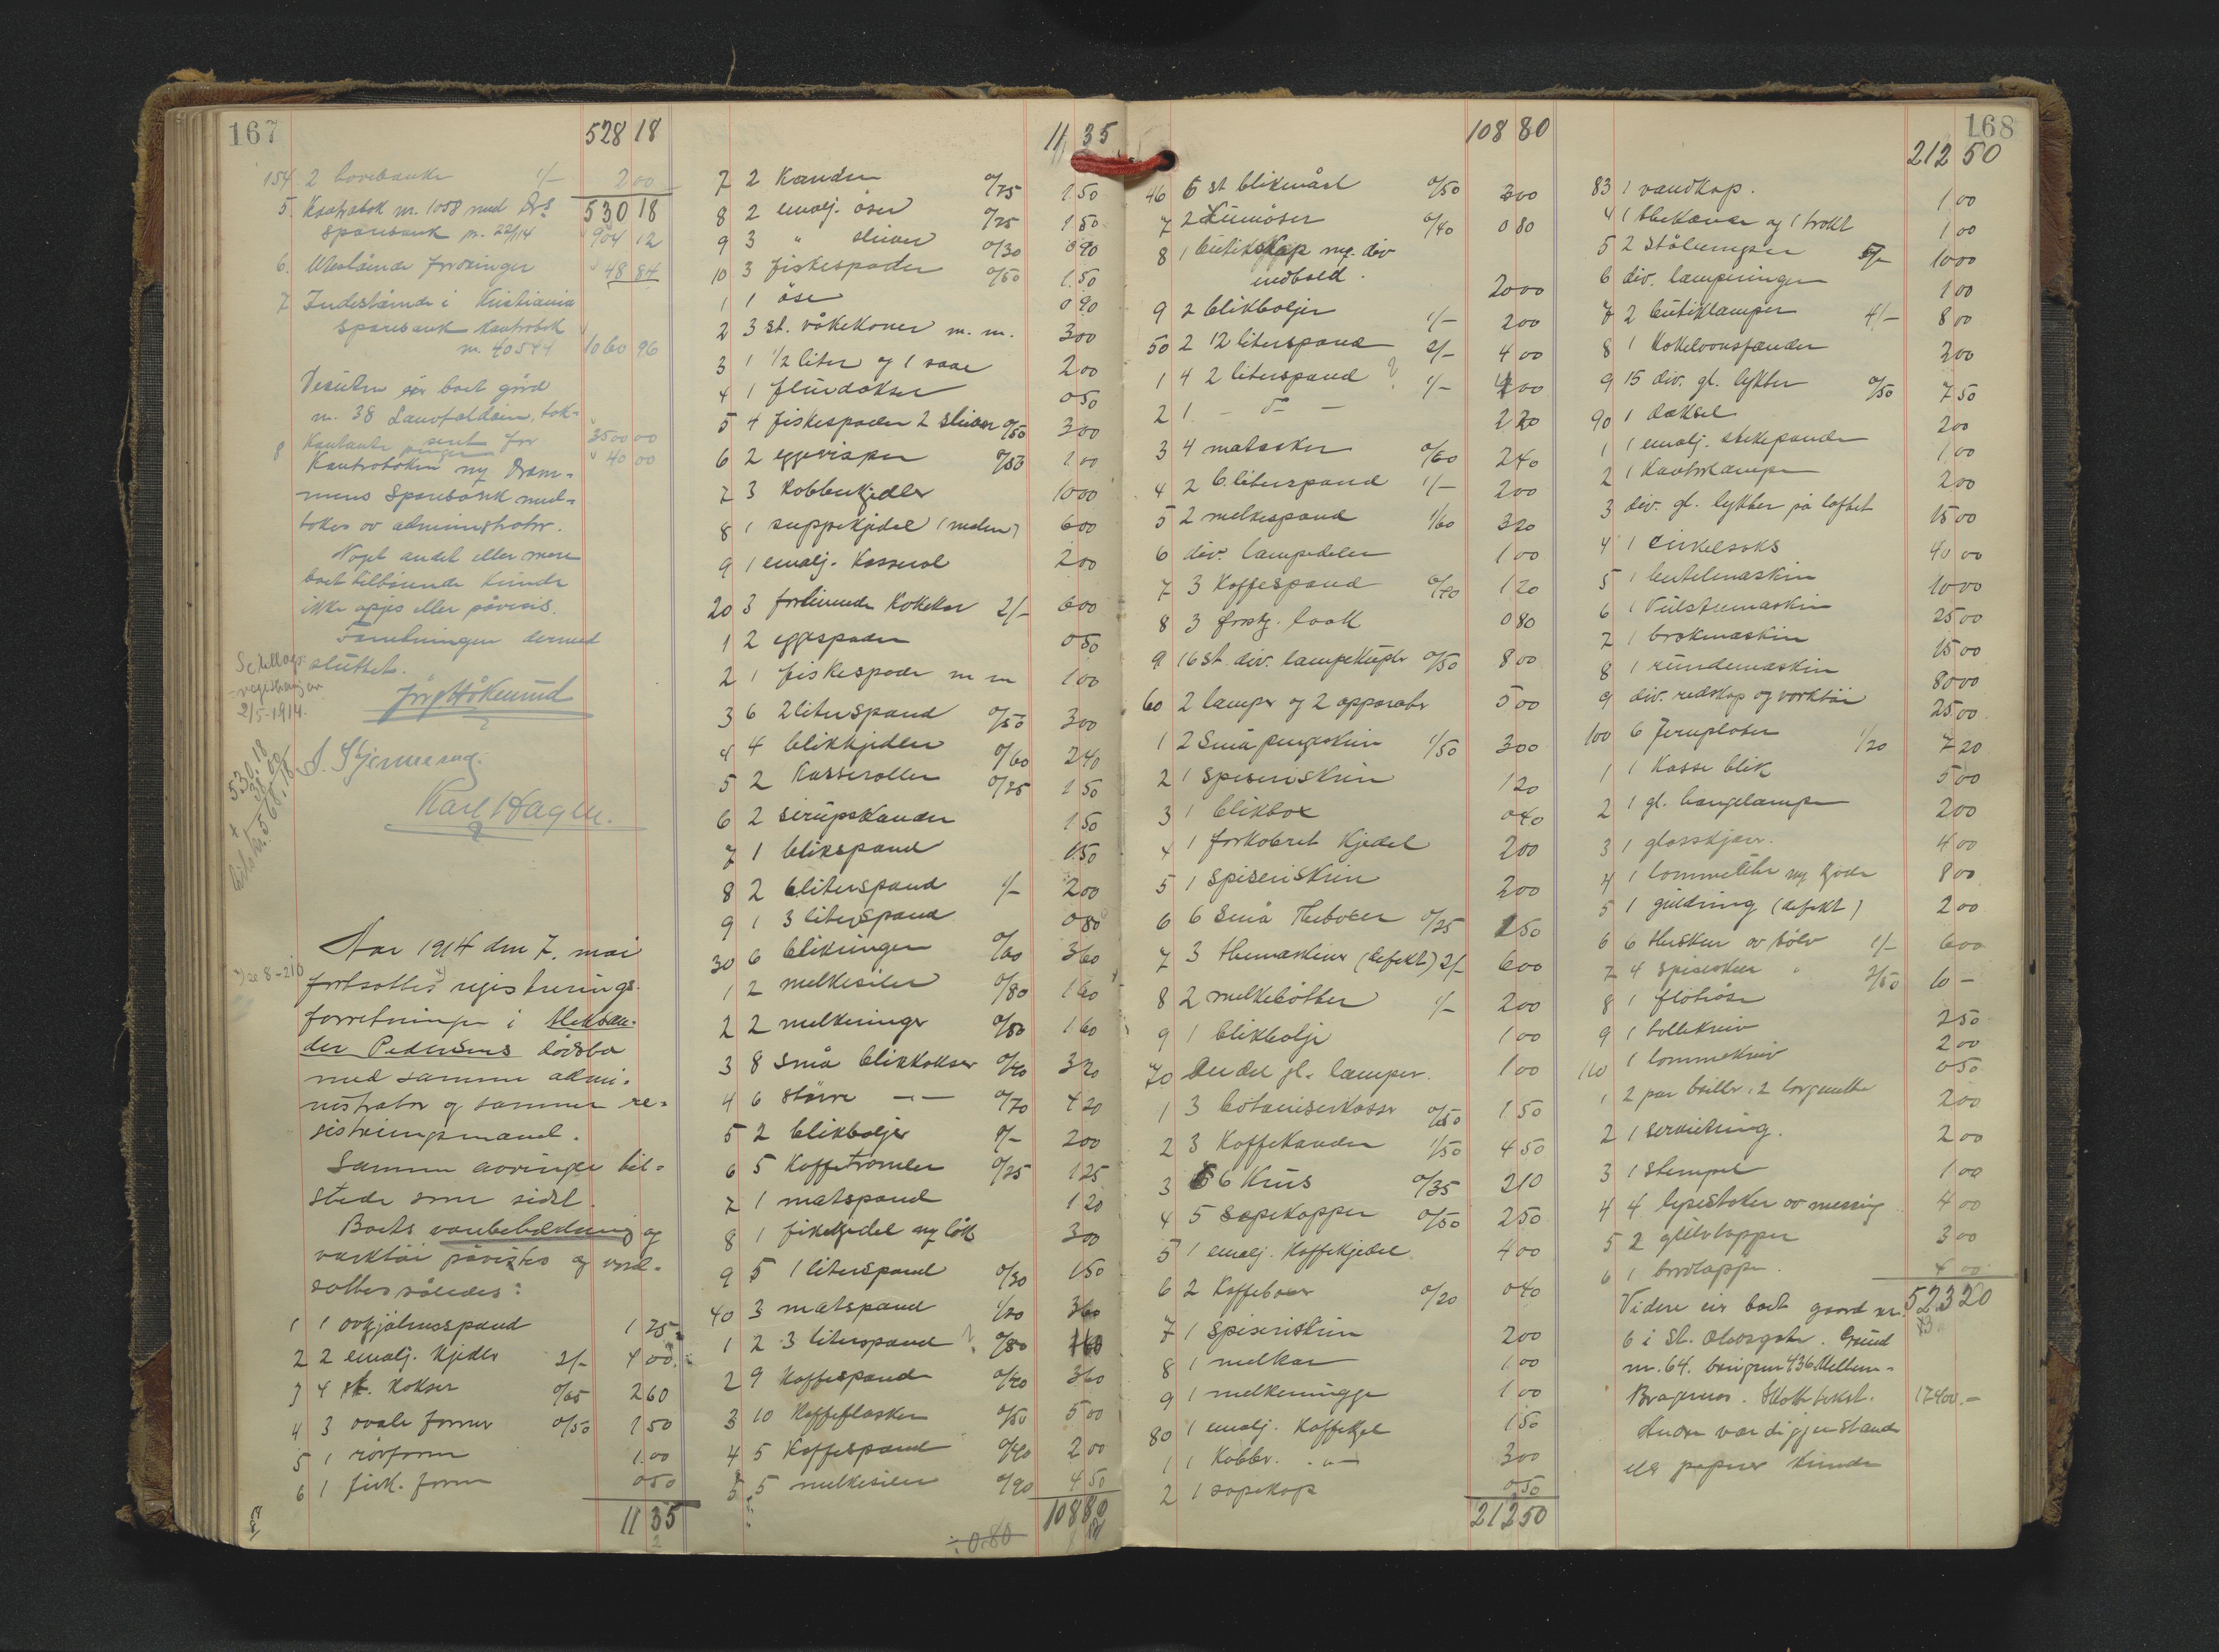 167
528 18
154 2 borebænke 1/- 2 00
530 18
5. Kontrabok nr. 1058 med Drs
sparebank pr. 22/1 14 904 12
6. Utestående fordringer 48 84
7 Indestående i Kristiania
Sparebank Kontrabok
nr. 40544 1060 96
Desuten eier boet gård
nr. 38 tak-
serat for 3500 00
8 Kontante penger 40 00
Kontraboken Dram-
mens Sparebank med-
tokes av administrator.
Noget andet eller mere
boet tilhørende kunde
ikke opgis eller påvises.
Forretningen dermed
sluttet.
2/5-1914.
Karl Hagen.
530.18
38.00
568.18
Aar 1914 den 7. mai
fortsattes registrerings-
forretningen i Aleksan-
der Pedersens dødsbo
med samme admi-
nistrator og samme re-
gistreringsmand.
Samme arvinger til-
stede som sidst.
Boets varebeholdning og
verktøi påvistes og verd-
sattes således:
1 1 avkjølingsspand 1 25
2 2 emalj. kjedler 2/- 4 00
3 4 st. kokser 0/65 2 60
4 3 ovale former 0/50 1 50
5 1 rørform 1 00
6 1 fisk. form 0 50
11 35
11 35
7 2 Kander 0/75 1 50
8 2 emalj. øser 0/75 1 50
9 3 " sleiver 0/30 0 90
10 3 fiskespader 0/50 1 50
1 1 øse 0 90
2 3 st. våkekoner m. m. 3 00
3 1 1/2 liter og 1 2 00
4 1 0 50
5 4 fiskespader 2 sleiver 0/50 3 00
6 2 eggevisper 0/50 1 00
7 3 Kobberkjedler 10 00
8 1 suppekjedel 6 00
9 1 emalj. Kasserol 2 00
20 3 fortinnede Kokekar 2/- 6 00
1 2 eggspader 0 50
2 1 fiskespade m m 1 00
3 6 2 literspand 0/50 3 00
4 4 blikkjedler 0/60 2 40
5 2 Kasseroller 0/75 1 50
6 2 sirupskander 1 50
7 1 blikspand 1 50
8 2 6 literspand 1/- 2 00
9 1 3 literspand 0 80
30 6 blikringer 0/60 3 60
1 2 melkesiler 0/80 1 60
2 2 melkeringer 0/80 1 60
3 8 små blikkokser 0/40 3 20
4 6 større -"- 0/70 4 20
5 2 blikbaljer 1/- 2 00
6 5 Kaffetromler 0/25 1 25
7 1 matspand 1 20
8 1 fiskekjedel m/ låk 3 00
9 5 1 literspand 0/30 1 50
40 3 matspand 1/20 3 60
1 2 3 literspand 0/80 1 60
2 9 Kaffespand 0/40 3 60
3 10 Kaffeflasker 0/50 5 00
4 5 Kaffespand 0/40 2 00
5 5 melkesiler 0/90 4 50
108 80
÷ 0.80
108 80
46 6 st blikmål 0/50 3 00
7 2 Limøser 0/40 0 80
8 1 butikskap m/ div
indhold. 20 00
9 2 blikbaljer 1/- 2 00
50 2 12 literspand 2/- 4 00
1 4 2 literspand 1/- 4 00
2 1 - do - 2 20
3 4 matæsker 0/60 2 40
4 2 6 literspand 1/- 2 00
5 2 melkespand 1/60 3 20
6 div. lampedeler 1 00
7 3 Kaffespand 0/40 1 20
8 3 0 80
9 16 st. div. lampekupler 0/50 8 00
60 2 lamper og 2 apparater 5 00
1 2 Små pengeskrin 1/50 3 00
2 1 Spiseriskrin 1 20
3 1 blikbox 0 40
4 1 forkobret Kjedel 2 00
5 1 Spiseriskrin 2 00
6 6 små Thebokser 0/25 1 50
7 3 themaskiner (defekt) 2/- 6 00
8 2 melkebøtter 1/- 2 00
9 1 blikbalje 1 00
70 En del gl. lamper. 1 00
1 3 botaniserkasser 0/50 1 50
2 3 Kaffekander 1/50 4 50
3 6 Krus 0/35 2 10
4 5 Sæpekopper 0/50 2 50
5 1 emalj. Kaffekjedel 4 00
6 2 Kaffebokser 0/20 0 40
7 1 Spiseriskrin 2 00
8 1 melkar 1 00
9 1 melkemugge 1 00
80 1 emalj. Kaffekjel 1 50
1 1 Kobbr. -"- 3 00
2 1 sæpekop 0 50
212 50
168
212 50
83 1 vandkop. 1 00
4 1 thekanne og 1 trakt 1 00
5 2 Stålvinger 5/- 10 00
6 div. lamperinger 1 00
7 2 butiklamper 4/- 8 00
8 1 Kokeovnsfender 3 00
9 15 div. gl. lykter 0/50 7 50
90 1 2 00
1 1 emalj. stekepande 1 00
2 1 Kontorlampe 2 00
3 div. gl. lykter på loftet 15 00
4 1 cirkelsaks 40 00
5 1 bertelmaskin 10 00
6 1 Vulstemaskin 25 00
7 1 brækmaskin 15 00
8 1 rundemaskin 80 00
9 div. redskap og verktøi 25 00
100 6 Jernplater 1/20 7 20
1 1 Kasse blik 5 00
2 1 gl. hængelampe 2 00
3 1 glasskjær. 4 00
4 1 lommeur m/ kjæde 8 00
5 1 guldring (defekt) 2 00
6 6 theskeer av sølv 1/- 6 00
7 4 spiseskeer " 2/50 10 -
8 1 fløteøse 2 50
9 1 bollekniv 2 00
110 1 lommekniv 0 50
1 2 par briller, 2 lorgnetter 2 00
2 1 serviettring. 2 00
3 1 Stempel 1 00
4 4 lysestaker av messing 4 00
5 2 gulvtæpper 3 00
6 1 bordtæppe. 4 00
523 20
Videre eier boet gaard nr.
6 i St. Olavsgate. Grund
nr. 64. brugsnr 436 Mellem-
Bragernes. Skattetakst. 17400.-
Andre værdigjenstande
eller papirer kunde